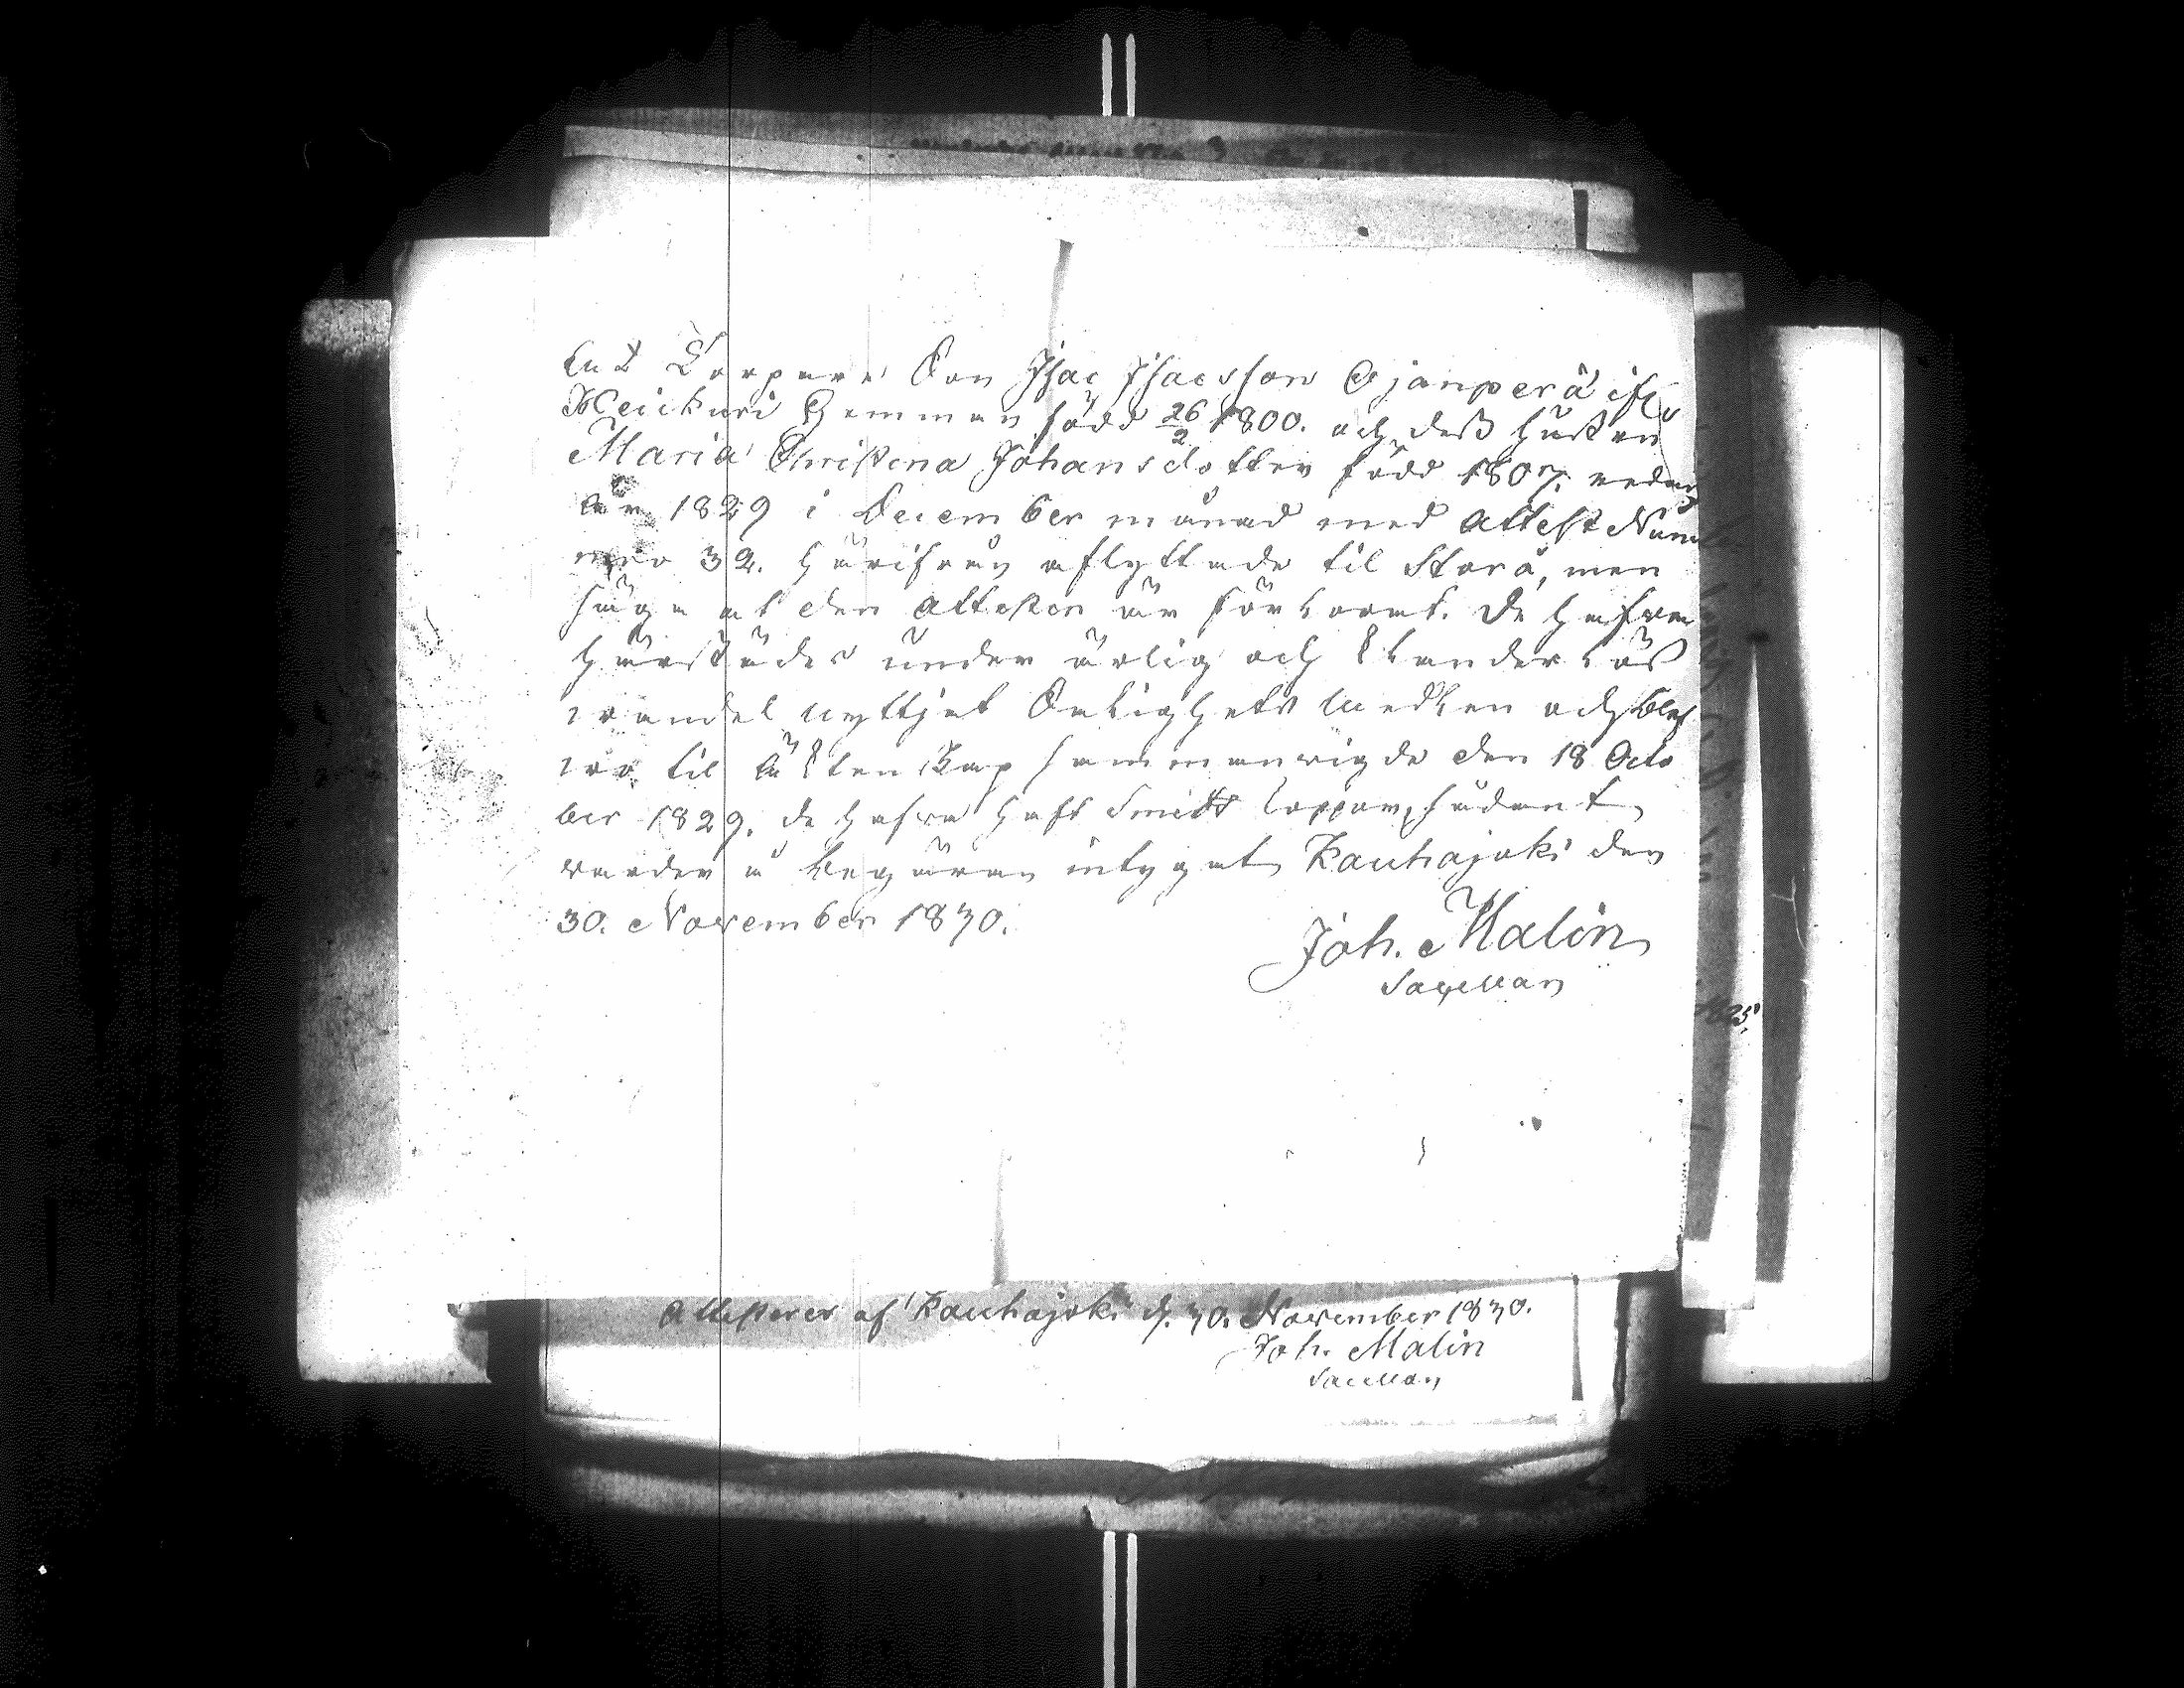 At Torpare Son Isac Isacsson Ojanperä ifr
Keickuri Hemman född 26/2 1800. och dess hustru
Maria Christina Johansdotter född 1807. redan
år 1829 i December månad med Attest Num
mro 32. härifrån aflyttade til Storå, men
säga at den attesten är förkomt. De hafwa
härstädes under ärlig och klanderlös
wandel nyttjat Salighets Medlen och blef
wo til Äktenskap sammanwigde den 18 Octo
ber 1829. de hafwa haft Smitt koppor, sådant
warder å begäran intygat, Kauhajoki den
30. November 1830.
Joh. Malin
Sacellan
Attesteres af Kauhajoki d. 30. November 1830.
Joh. Malin
Sacellan
1825